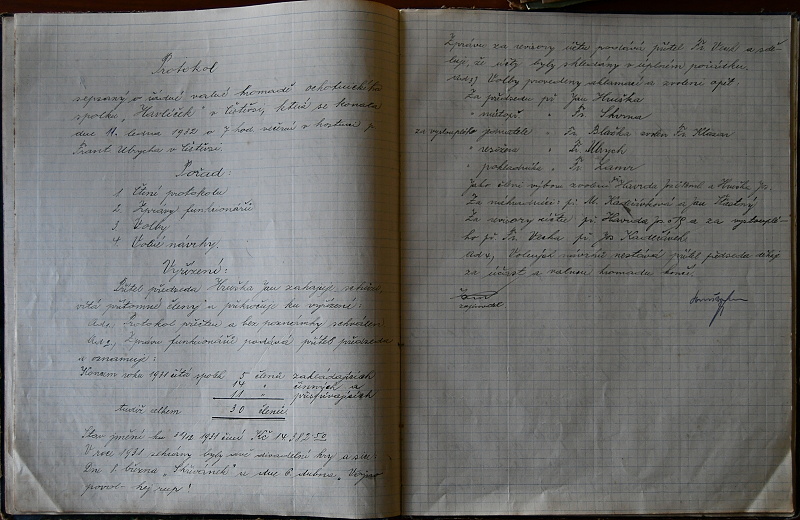 Protokol
sepsaný o řádné valné hromadě ochotnického
spolku „Havlíček“ v Čistěvsi, která se konala
dne 11. ledna 1932 o 7 hod. večerní v hostinci p.
Frant Ulrycha v Čistěvsi.
Pořad:
1. Čtení protokolu
2. Zprávy funkcionářů
3. Volby
4. Volné návrhy.
Vyřízení:
Přítel předseda Hruška Jan zahajuje schůzi,
vítá přítomné členy a přikročuje ku vyřízení:
Ad 1. Protokol přečten a bez poznámky schválen
Ad 2. Zprávu funkcionářů podává přítel předseda
a oznamuje:
Koncem roku 1931 čítá spolek 5 členů zakládajících
14 „ činných a
11 „ přispívajících
tudíž celkem 30 členů
Stav jmění ku 31/12 1931 činí Kč 14.382·50
V roce 1931 sehrány byly dvě divadelní hry a sice:
Dne 1. března „Skřivánek“ a dne 6. dubna
hej rup!
Zprávu za revisory účtů podává přítel Fr. a sdě-
luje, že účty byly shledány v úplném pořádku.
Ad 3) Volby provedeny aklamací a zvoleni opět:
Za předsedu př. Jan Hruška
„ místopř. „ Fr.
za vystouplého jednatele „ Fr. Blažka zvolen Fr. Klazar
„ režiséra „ Fr. Ulrych
„ pokladníka „ Fr.
Jako členi výboru zvoleni Havrda a Hruška Jos.
Za náhradníci: př. M. a Jan Šťastný
Za revisory účtů: př. Havrda a za vystouplé-
ho př. Fr. př. Jos Kadeřávek.
Ad 4. Volných návrhů nestává přítel předseda děkuje
za účast a valnou hromadu končí.
zapisovatel